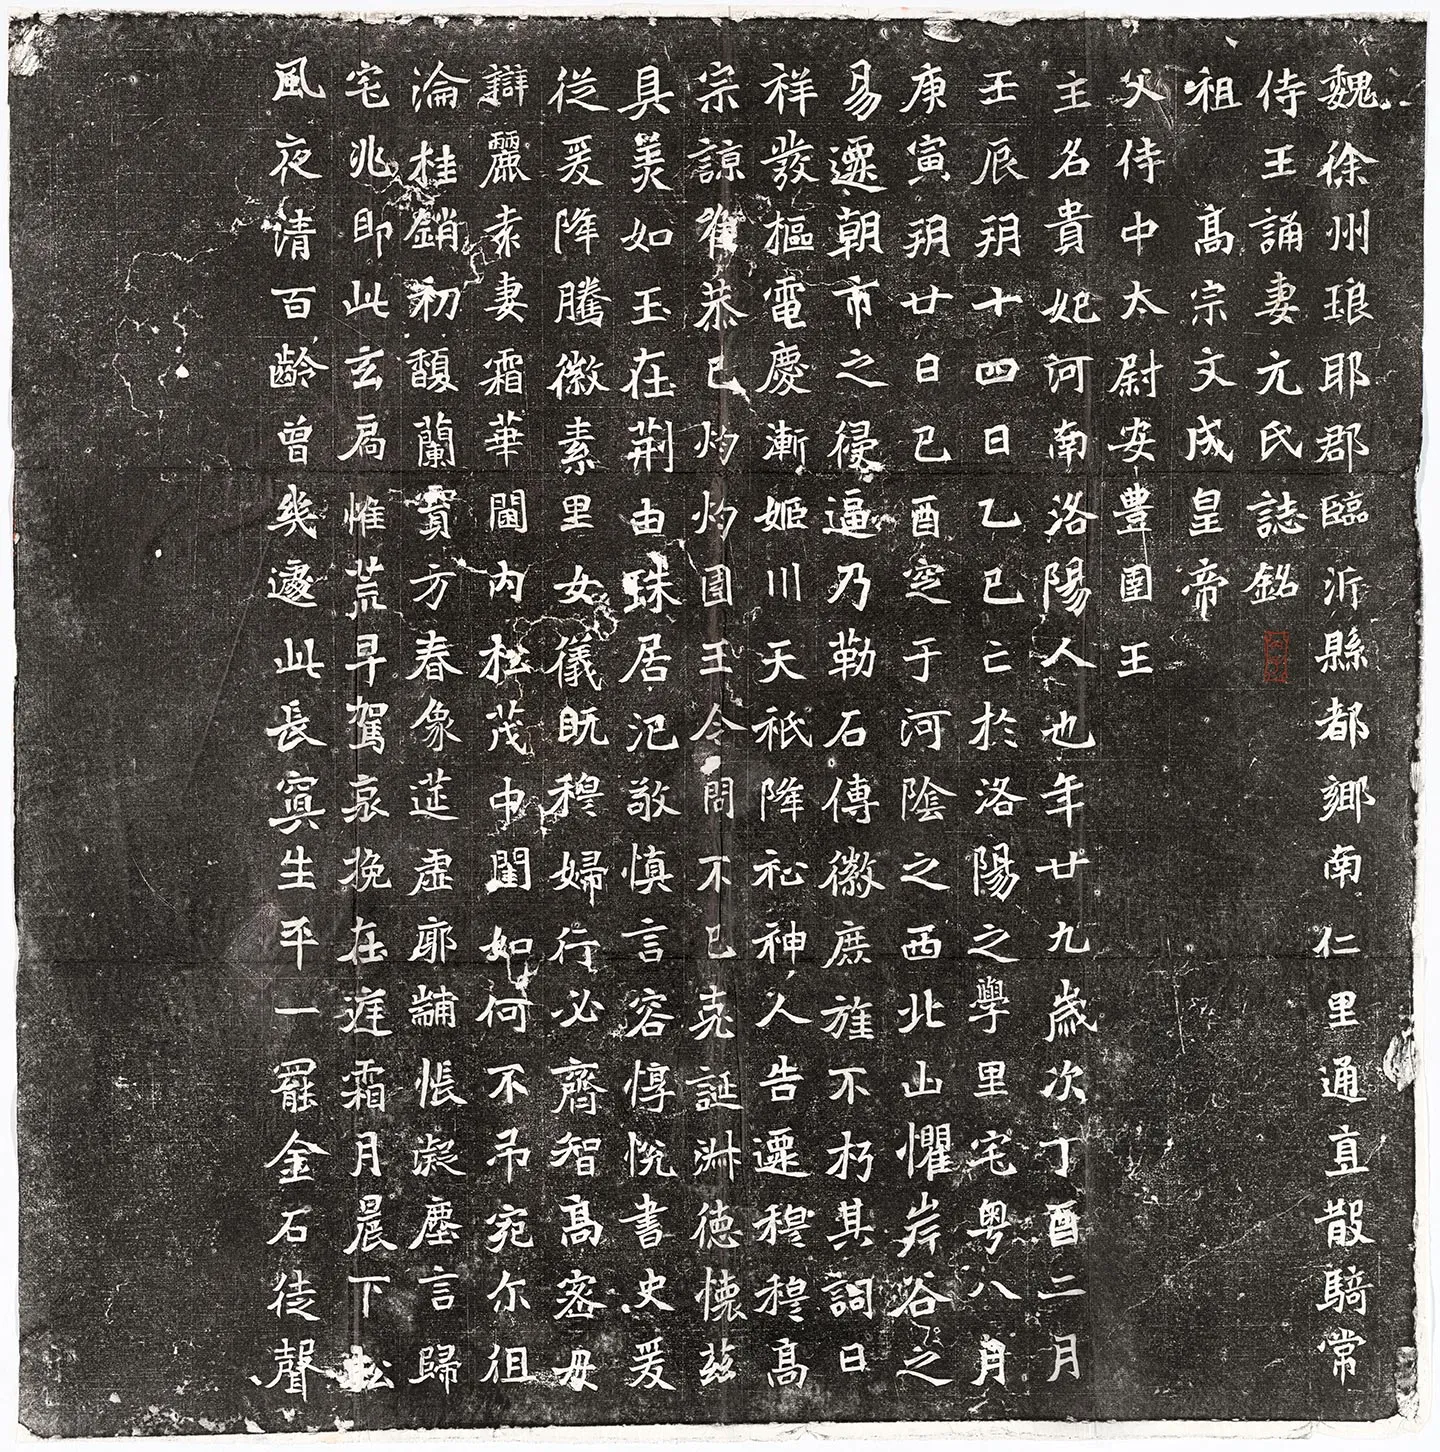 魏徐州琅耶郡臨沂縣都鄉南仁里通直散騎常
侍王誦妻元氏誌銘
祖高宗文成皇帝
父侍中太尉安豐圉王
主名貴妃河南洛陽人也年廿九歲次丁酉二月
壬辰玥十四日乙巳亡於洛陽之學里宅粵八月
庚寅玥廿日己酉窆于河陰之西北山懼岸谷之
易遷朝市之侵逼乃勒石傳徽庶旌不朽其詞曰
祥發樞電慶漸姬川天祇降祉神人告遷穆穆高
宗諒唯恭己灼灼圉王令問不已克誕淋德懷茲
具美如玉在荊由珠居汜敬慎言容惇悅書史爰
從爰降騰徽素里女儀既穆婦行必齊智高密母
辯麗素妻霜華閫內松茂中闈如何不弔宛尒徂
淪桂銷初馥蘭賓方春像莚虛廓黼悵凝塵言歸
宅兆即此玄扃惟荒早駕哀挽在庭霜月晨下松
風夜清百齡曾幾遽此長寘生平一罷金石徒聲